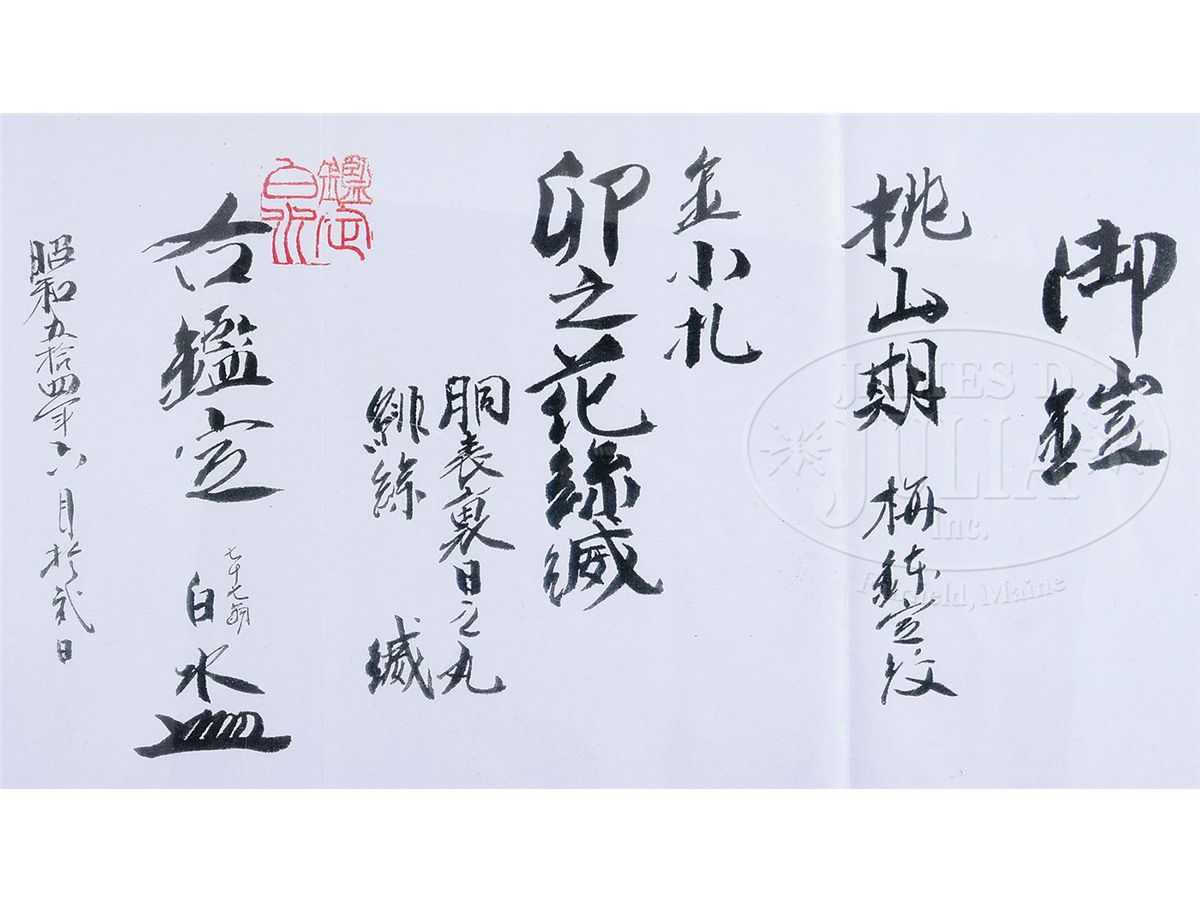 御鎧
桃山期 梅鉢定紋
金小札
卯之花絲縅
胴表裏日之丸
緋絲 縅
鑑定
白水
右鑑定
七十七翁
白水
昭和五拾四年六月拾弐日
JAMES D.
JULIA
Inc.
Fairfield, Maine